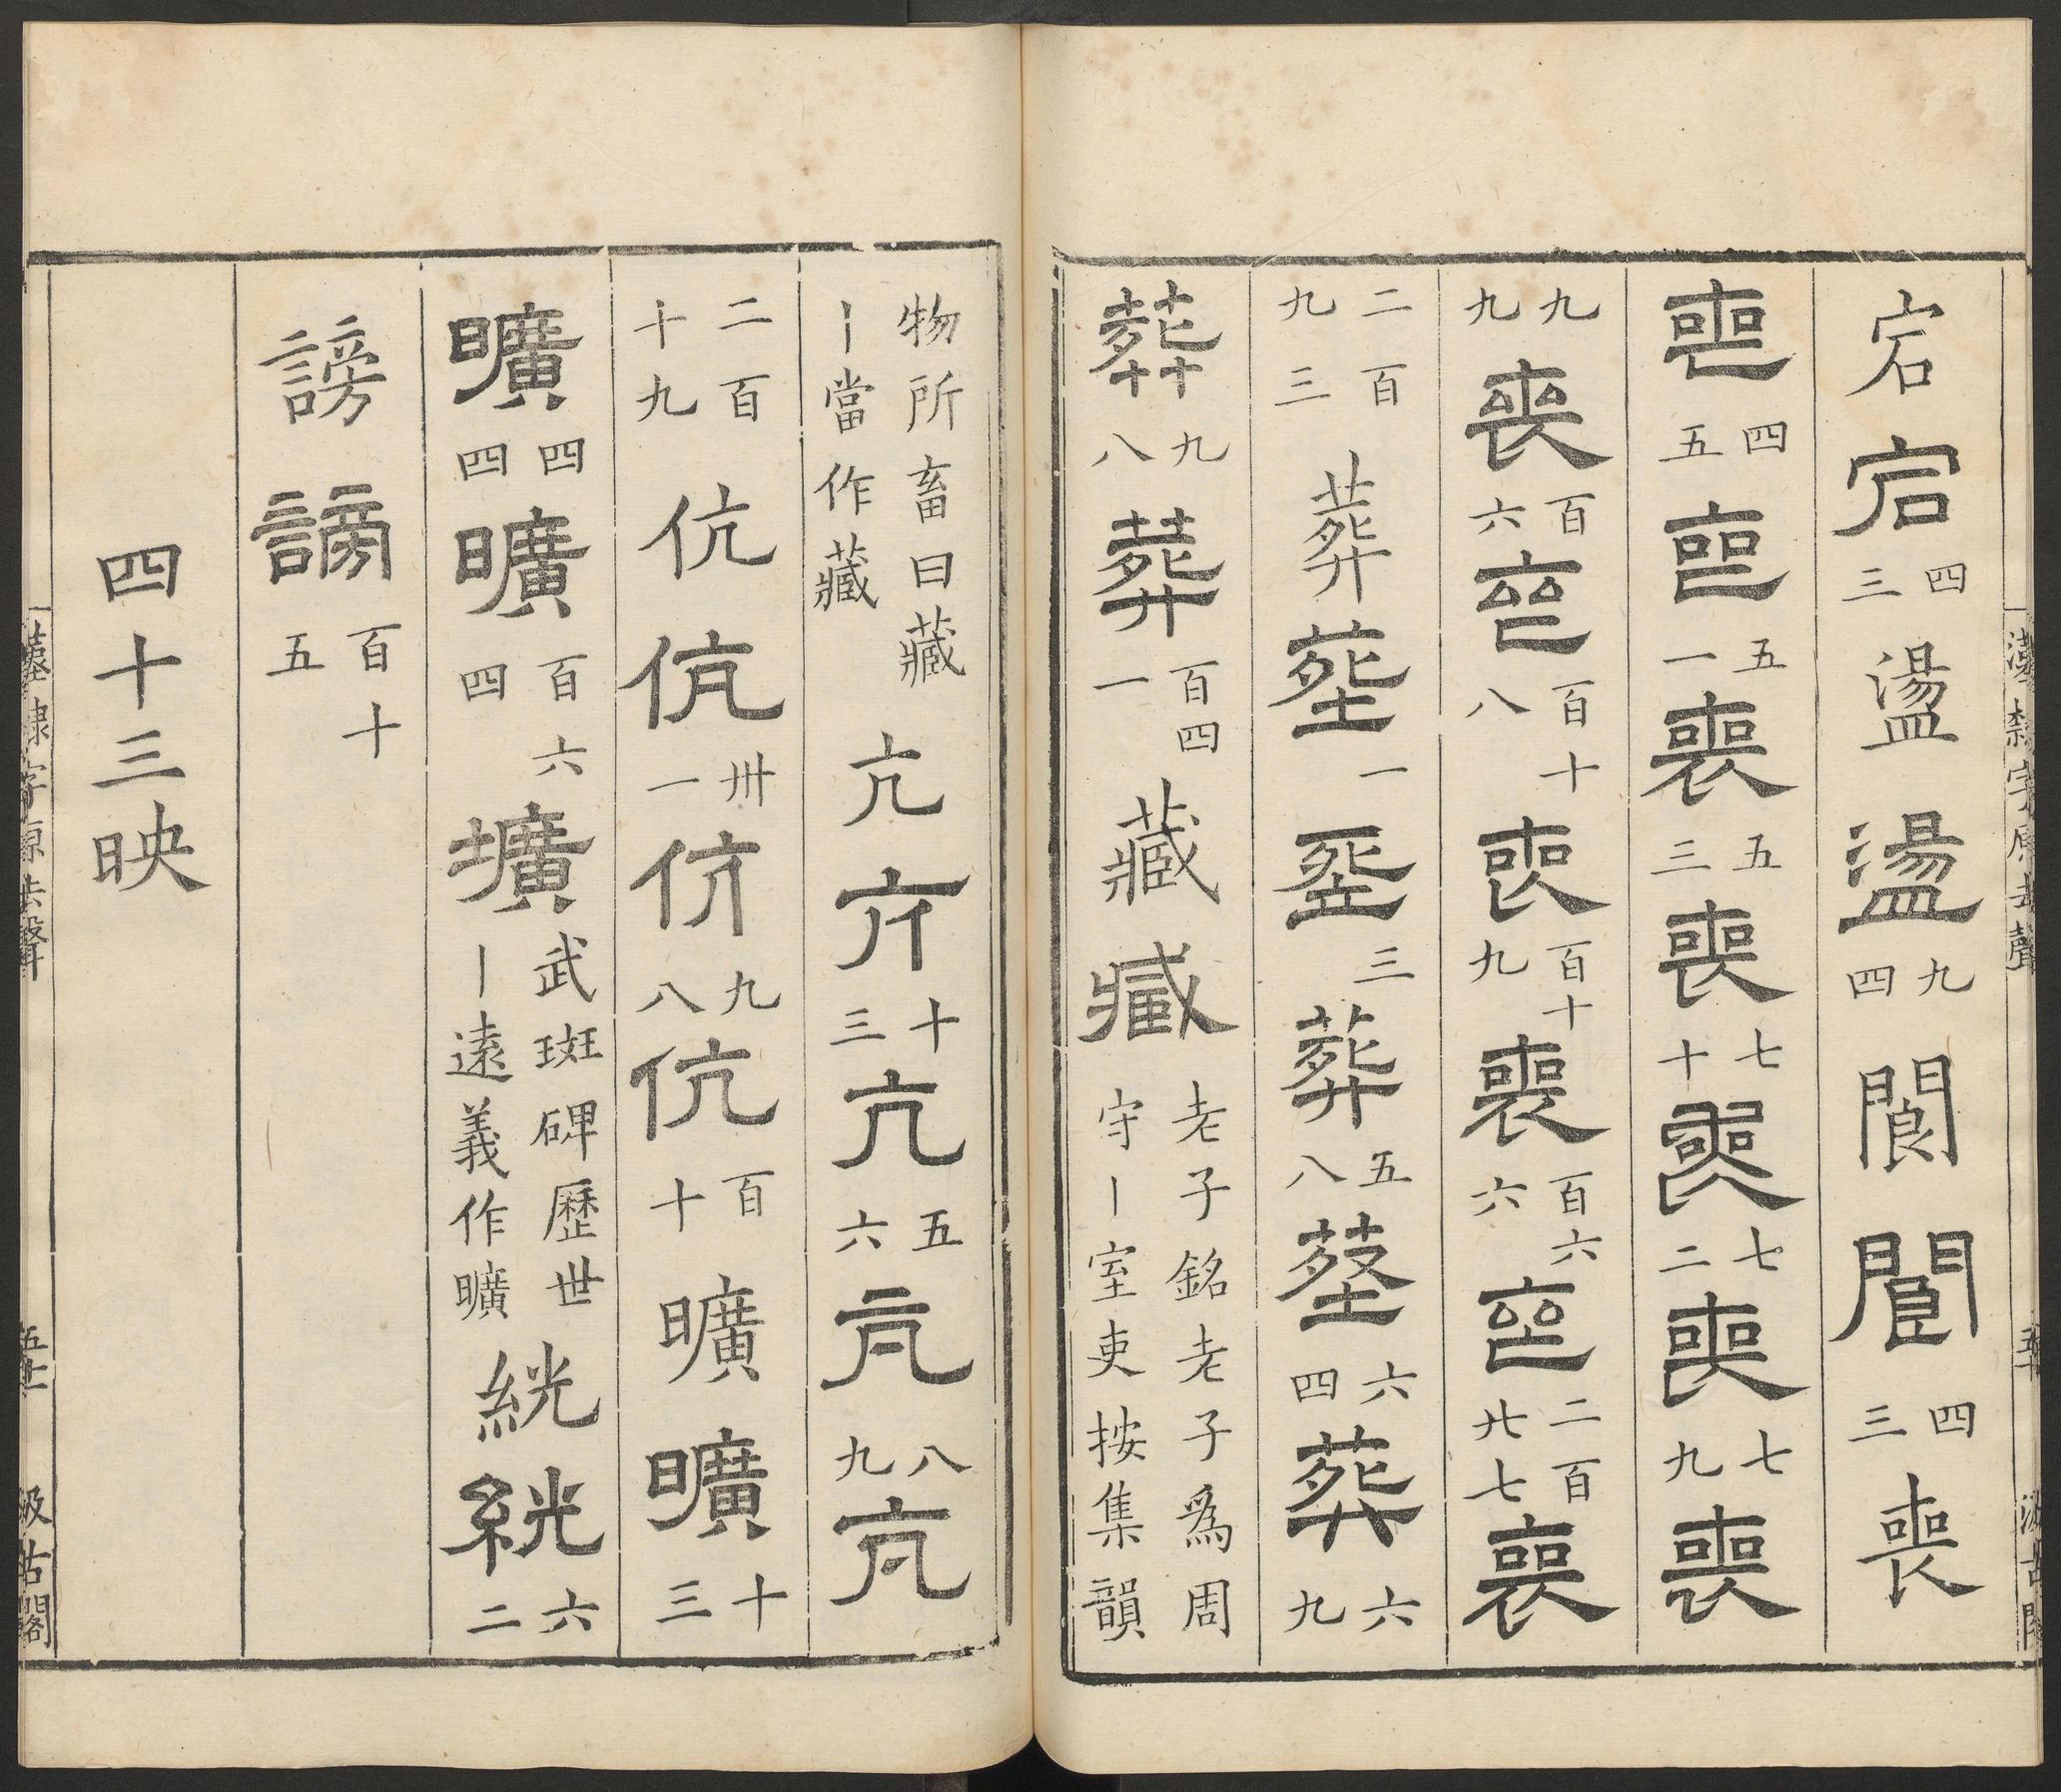 漢隸字原去聲
宕宕四三盪盪九四閬閬四三喪
喪四五喪五一喪五三喪七十喪七二喪七九喪
九九喪百六喪百十八喪百十九喪百六六喪二百卄七喪
二百九三葬塟一塟三葬五八塟六四葬六九
葬九八葬百四一藏藏老子銘老子爲周守丨室吏按集韻
物所畜曰藏丨當作藏亢亢十三亢五六亢八九亢
二百十九伉伉卅一伉九八伉百十曠曠十三
曠四四曠百六四壙武斑碑歷世丨遠義作曠絖絖六二
謗謗百十五
四十三映
漢隸字原去聲 汲古閣